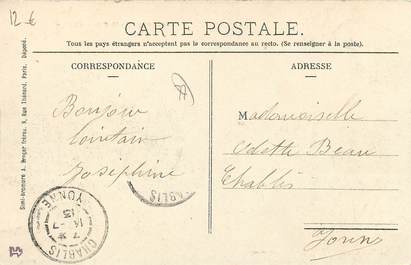 12 €
CARTE POSTALE.
Tous les pays étrangers n'acceptent pas la correspondance au recto. (Se renseigner à la poste).
CORRESPONDANCE
ADRESSE
Bonjour
lointain
Joséphine
Mademoiselle
Odette Beau
Chablis
Yonne
CHABLIS
CHABLIS
YONNE
7
14 - 7
13
Simi-bromure A. Breger frères, 9, Rue Thénard, Paris. Déposé.